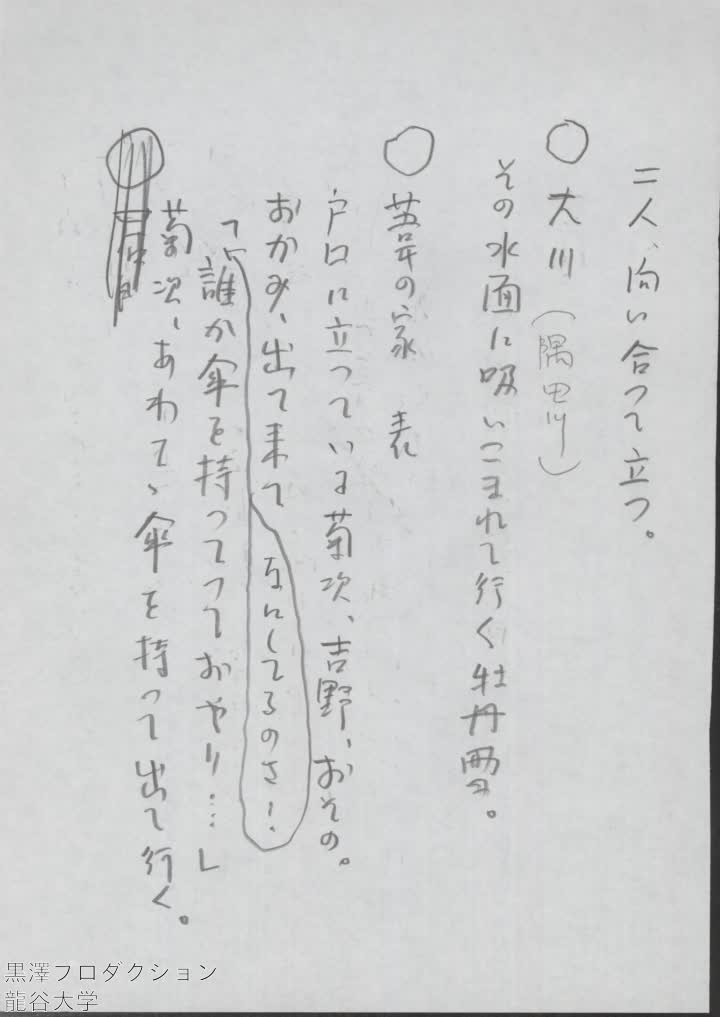 二人、向い合って立つ。
○大川（隅田川）
その水面に吸いこまれて行く牡丹雪。
○葦の家　表
戸口に立っている菊次、吉野、おその。
おかみ、出て来て
なにしてるのさ！
「誰か傘を持ってっておやり…」
菊次、あわてゝ傘を持って出て行く。
黒澤プロダクション
龍谷大学